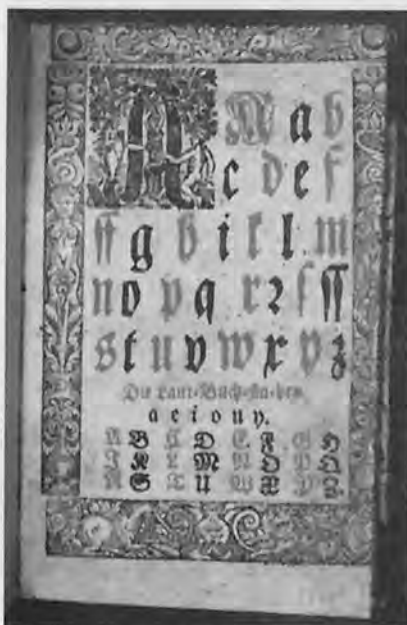 A A a b
c d e f
ff g h i k l m
n o p q r ꝛ ſ ſſ
s t u v w x y z
Die Laut-Buch-ſta-ben
a e i o u y.
A B C D E F G H
I K L M N O P Q
R S T U W X Y Z.